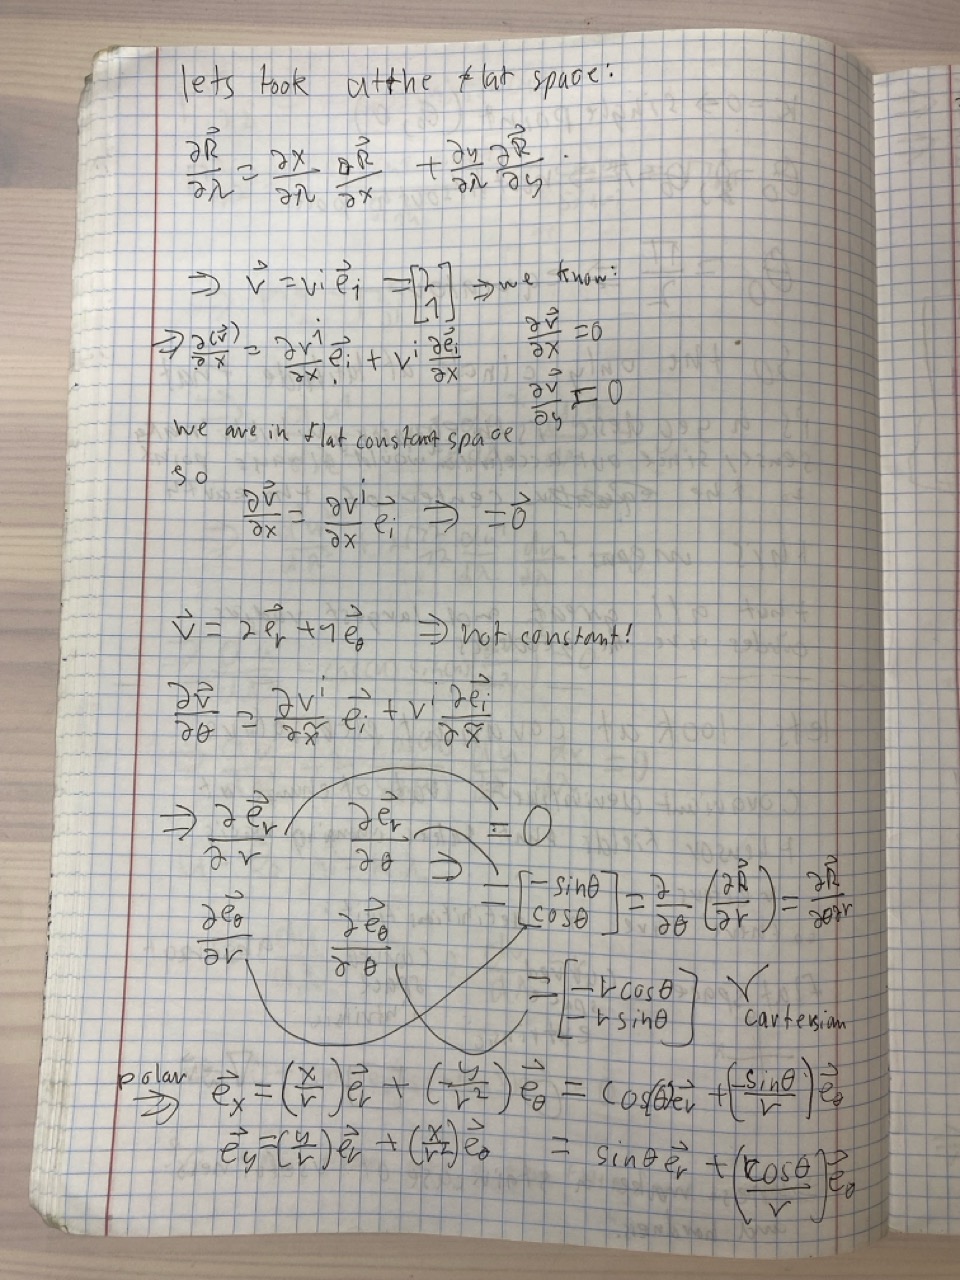 lets took at the flat space:
∂R⃗/∂λ = ∂x/∂λ ∂R⃗/∂x + ∂y/∂λ ∂R⃗/∂y .
⇒ v⃗ = vⁱ e⃗ᵢ = [2 1] ⇒ we know:
⇒ ∂(v⃗)/∂x = ∂vⁱ/∂x e⃗ᵢ + vⁱ ∂e⃗ᵢ/∂x
∂v⃗/∂x = 0
∂v⃗/∂y = 0
we are in flat constant space
so
∂v⃗/∂x = ∂vⁱ/∂x e⃗ᵢ ⇒ = 0⃗
v⃗ = 2e⃗_r + 1e⃗_θ ⇒ not constant!
∂v⃗/∂θ = ∂vⁱ/∂x̃ e⃗ᵢ + vⁱ ∂e⃗ᵢ/∂x̃
⇒ ∂e⃗_r/∂r ∂e⃗_r/∂θ = 0
⇒ = [-sinθ cosθ] = ∂/∂θ (∂R⃗/∂r) = ∂R⃗/∂θ∂r
∂e⃗_θ/∂r ∂e⃗_θ/∂θ
= [-r cosθ -r sinθ] √ cartersian
polar ⇒ e⃗_x = (x/r) e⃗_r + (-y/r²) e⃗_θ = cos(θ) e⃗_r + (-sinθ/r) e⃗_θ
e⃗_y = (y/r) e⃗_r + (x/r²) e⃗_θ = sinθ e⃗_r + (cosθ/r) e⃗_θ